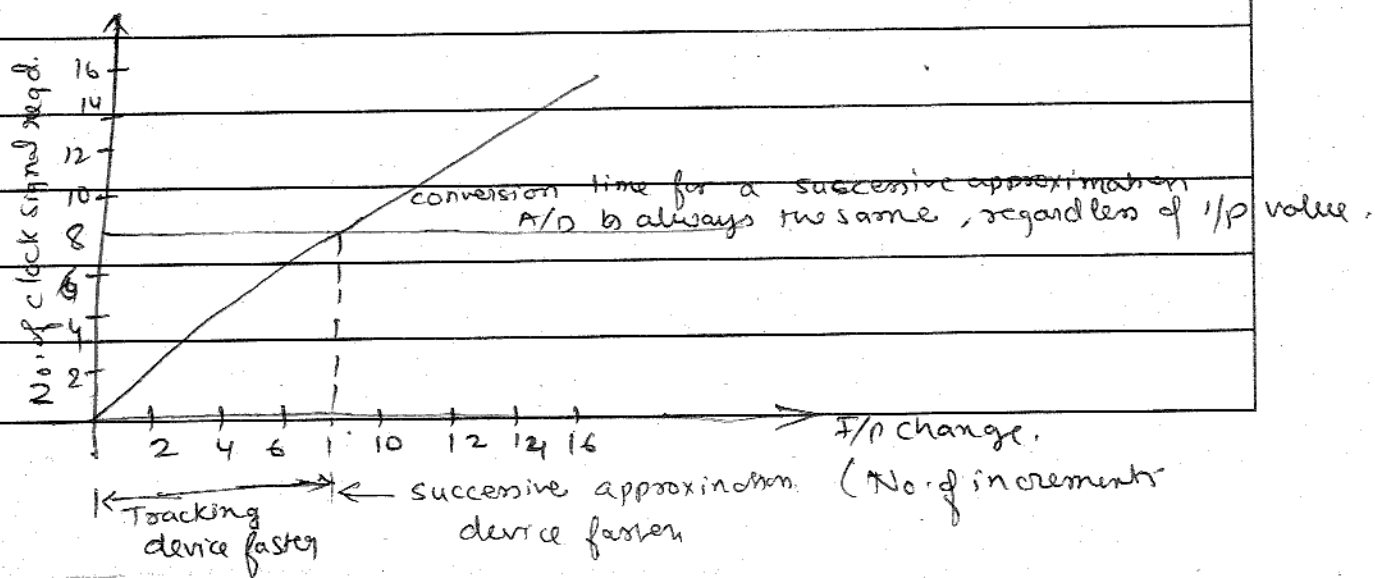 No. of clock signal reqd.
16
14
12
10
8
6
4
2
conversion time for a successive approximation
A/D is always the same, regardless of i/p value.
2 4 6 10 12 14 16
I/p change.
(No. of increments
Tracking
device faster
successive approximation
device faster